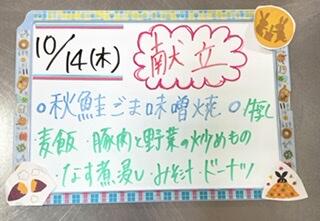 10/14(木) 献立
○秋鮭ごま味噌焼 ○牛乳
麦飯・豚肉と野菜の炒めもの
・なす煮浸し・みそ汁・ドーナツ